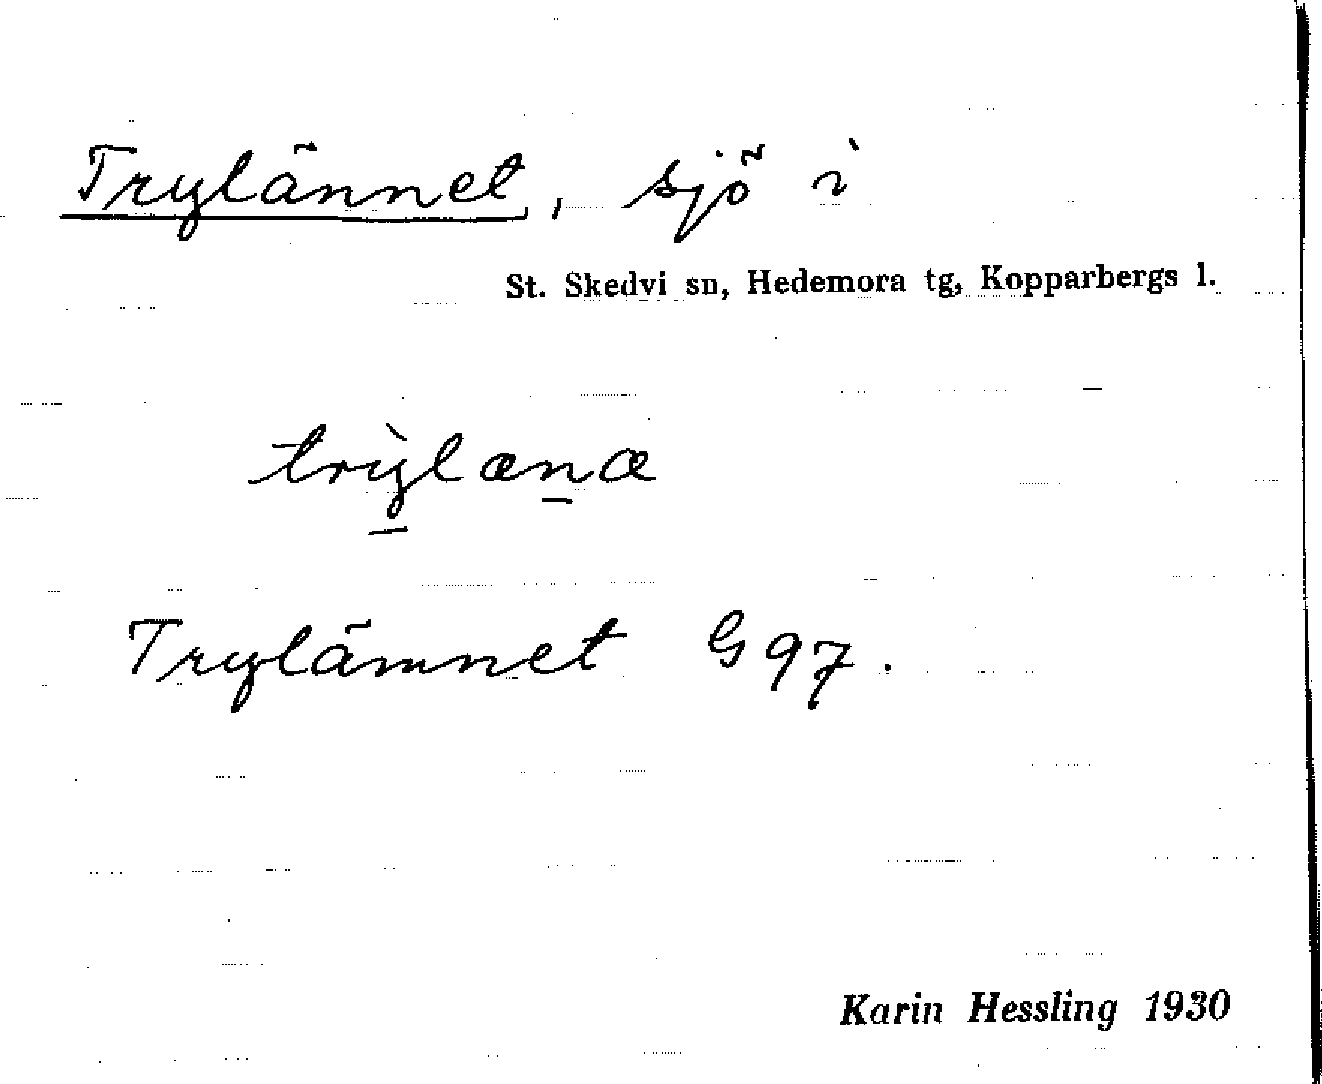 Trylännet, sjö i
St. Skedvi sn, Hedemora tg, Kopparbergs l.
trỳlænæ
Trylämnet G 97.
Karin Hessling 1930